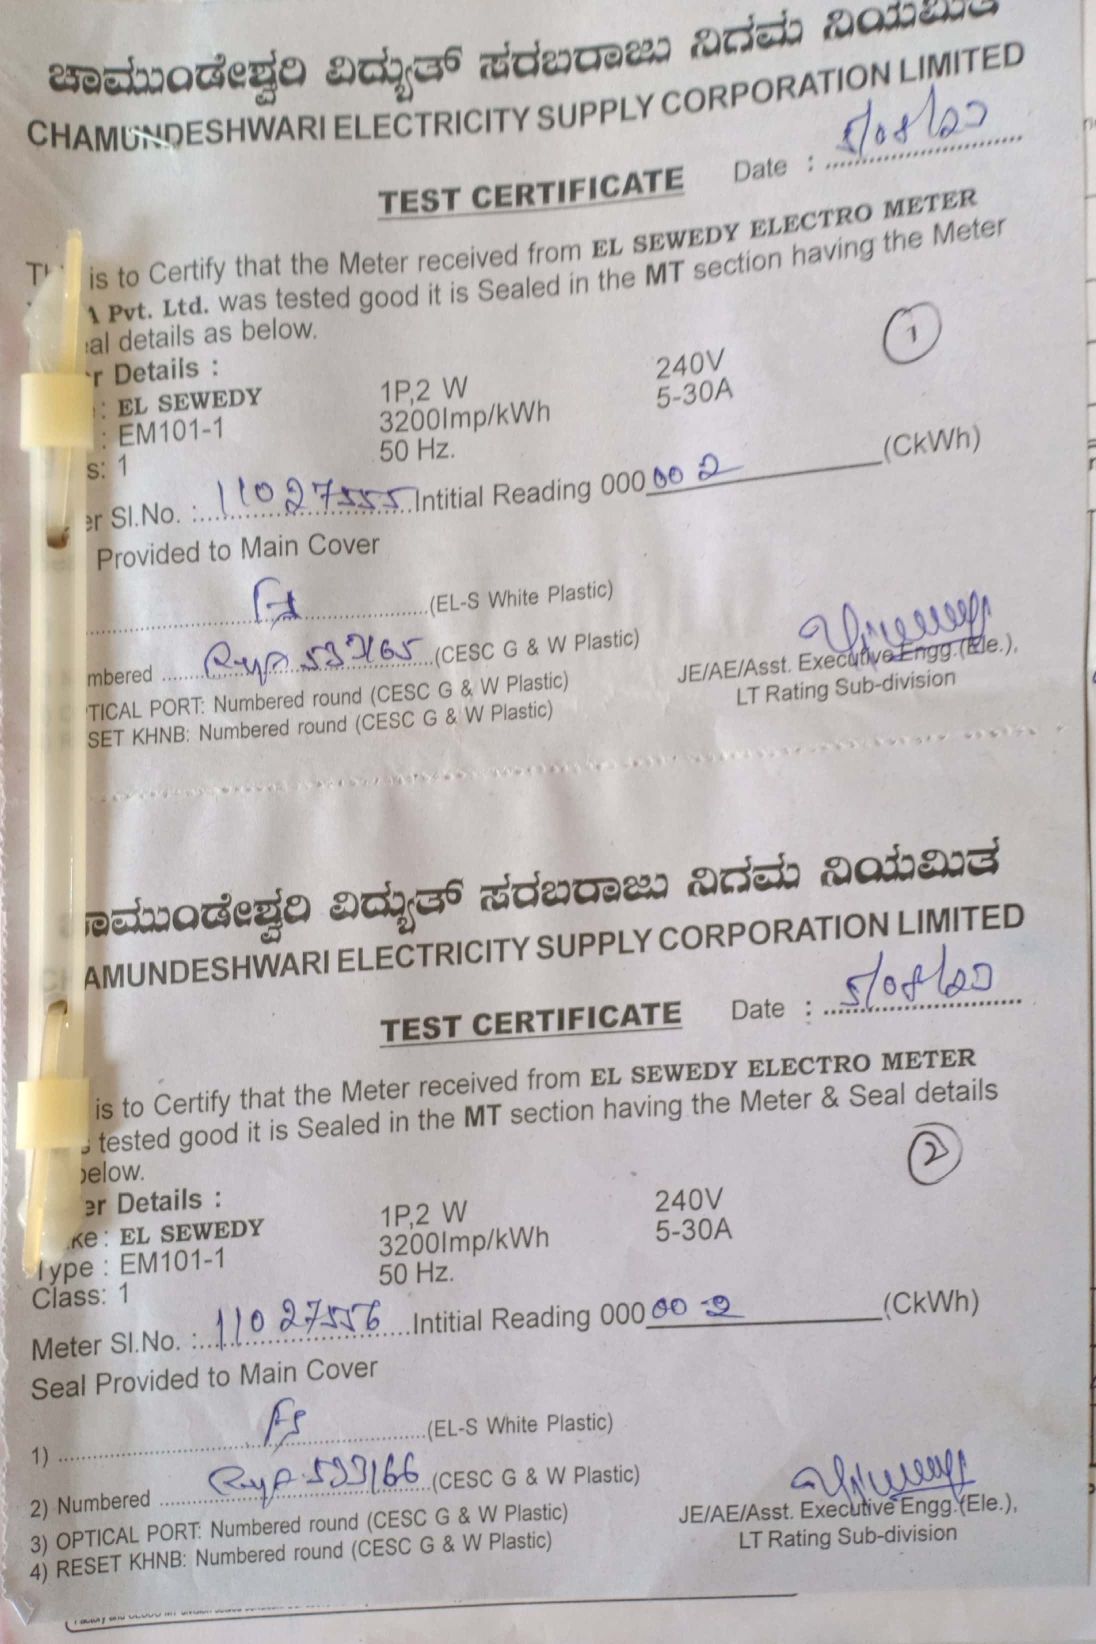 ಚಾಮುಂಡೇಶ್ವರಿ ವಿದ್ಯುತ್ ಸರಬರಾಜು ನಿಗಮ ನಿಯಮಿತ
CHAMUNDESHWARI ELECTRICITY SUPPLY CORPORATION LIMITED
TEST CERTIFICATE Date : 5/08/20
is to Certify that the Meter received from EL SEWEDY ELECTRO METER
A Pvt. Ltd. was tested good it is Sealed in the MT section having the Meter
al details as below.
1
r Details : 240V
: EL SEWEDY 1P,2 W 5-30A
: EM101-1 3200Imp/kWh
s: 1 50 Hz.
er Sl.No. : 11027555 Intitial Reading 000 00 2 (CkWh)
Provided to Main Cover
(EL-S White Plastic)
mbered 533165 (CESC G & W Plastic)
TICAL PORT: Numbered round (CESC G & W Plastic)
SET KHNB: Numbered round (CESC G & W Plastic)
JE/AE/Asst. Executive Engg.(Ele.),
LT Rating Sub-division
ಚಾಮುಂಡೇಶ್ವರಿ ವಿದ್ಯುತ್ ಸರಬರಾಜು ನಿಗಮ ನಿಯಮಿತ
CHAMUNDESHWARI ELECTRICITY SUPPLY CORPORATION LIMITED
TEST CERTIFICATE Date : 5/08/20
is to Certify that the Meter received from EL SEWEDY ELECTRO METER
tested good it is Sealed in the MT section having the Meter & Seal details
below.
2
er Details : 240V
ke : EL SEWEDY 1P,2 W 5-30A
Type : EM101-1 3200Imp/kWh
Class: 1 50 Hz.
Meter Sl.No. : 11027556 Intitial Reading 000 00 2 (CkWh)
Seal Provided to Main Cover
1) (EL-S White Plastic)
2) Numbered 533166 (CESC G & W Plastic)
3) OPTICAL PORT: Numbered round (CESC G & W Plastic)
4) RESET KHNB: Numbered round (CESC G & W Plastic)
JE/AE/Asst. Executive Engg.(Ele.),
LT Rating Sub-division